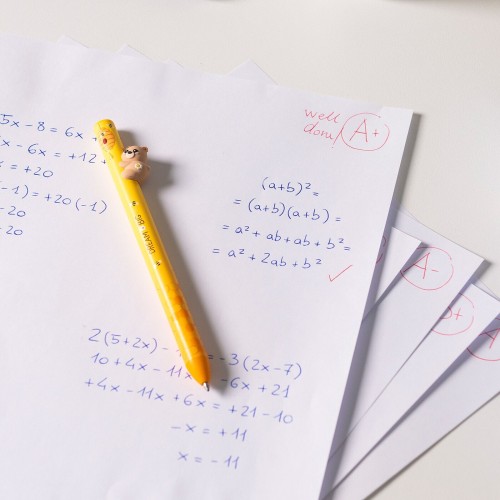 well
done!
A+
5x - 8 = 6x +
x - 6x = +12 +
x = +20
-1) = +20 (-1)
-20
-20
(a+b)² =
= (a+b)(a+b) =
= a² + ab + ab + b² =
= a² + 2ab + b²
DREAM • BIG
2(5+2x) - = -3(2x-7)
10 + 4x - 11x -6x + 21
+4x - 11x + 6x = +21 - 10
-x = +11
x = -11
A-